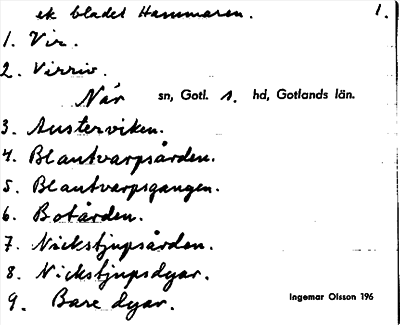 ek bladet Hammaren. 1.
1. Vir.
2. Virriv.
När sn, Gotl. s. hd, Gotlands län.
3. Austerviken.
4. Blautvarpsården.
5. Blautvarpsgangen.
6. Botården.
7. Nickstjupsården.
8. Nickstjupsdyar.
9. Bare dyar.
Ingemar Olsson 196